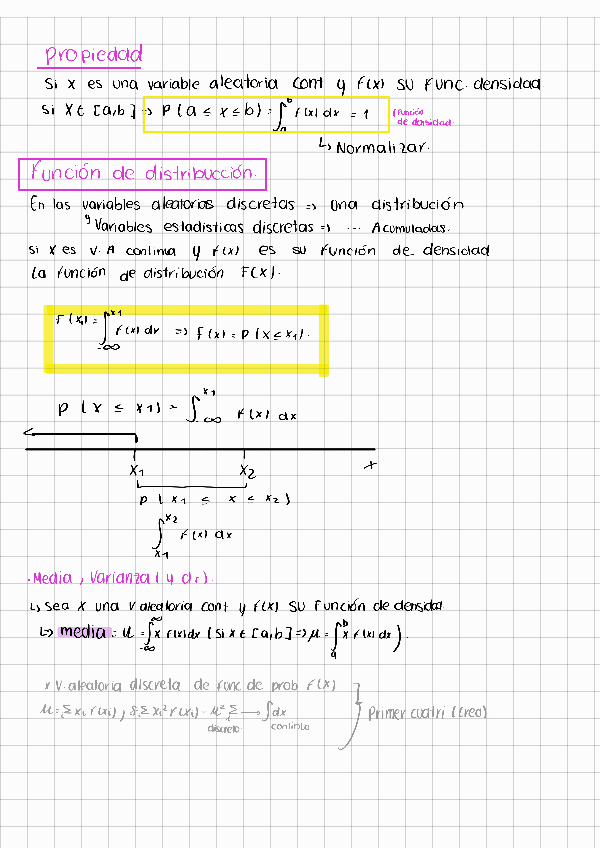 Propiedad
Si x es una variable aleatoria cont y f(x) su func. densidad
Si X ∈ [a,b] => P(a ≤ x ≤ b) = ∫_a^b f(x) dx = 1 (función de densidad.
↳ Normalizar.
Función de distribucción.
En las variables aleatorias discretas => Una distribución
y Variables estadísticas discretas => ... Acumuladas.
Si x es V.A continua y f(x) es su función de densidad
La función de distribución F(x).
F(x₁) = ∫_{-∞}^{x1} f(x) dx => F(x) = P(X ≤ x₁).
P(X ≤ x1) = ∫_{-∞}^{x1} f(x) dx
x₁ x₂ x
P(x₁ ≤ x ≤ x₂)
∫_{x1}^{x2} f(x) dx
· Media, Varianza (y dt).
↳ Sea x una v aleatoria cont y f(x) su función de densidad
↳ media: μ = ∫_{-∞}^{∞} x f(x) dx (si x ∈ [a,b] => μ = ∫_a^b x f(x) dx).
x V. aleatoria discreta de func de prob f(x)
μ = Σ xᵢ f(xᵢ), Σ xᵢ² f(xᵢ) - μ² Σ → ∫ dx
discreto continua
Primer cuatri (creo)